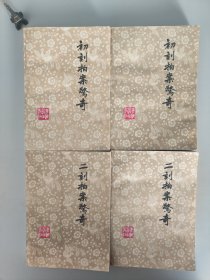 初刻拍案驚奇
初刻拍案驚奇
二刻拍案驚奇
二刻拍案驚奇